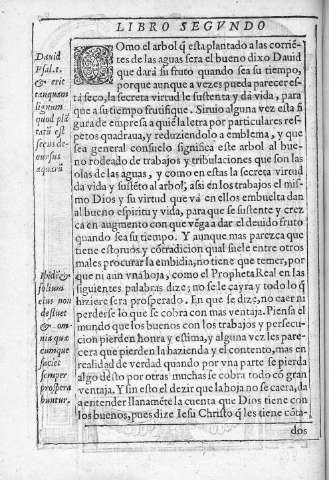 LIBRO SEGVNDO
Dauid
Psal.1.
& erit
tanquam
lignum
quod plã
tatũ est
secus de-
cursus
aquarũ
COmo el arbol q̃ esta plantado a las corriẽ
tes de las aguas sera el bueno dixo Dauid
que dará su fruto quando sea su tiempo,
porque aunque a vezes pueda parecer es-
tá seco, la secreta virtud le sustenta y dá vida, para
que a su tiempo frutifique. Siruio alguna vez esta fi
gura de empresa a quiẽ la letra por particulares res-
petos quadraua, y reduziendolo a emblema, y que
sea general consuelo significa este arbol al bue-
no rodeado de trabajos y tribulaciones que son las
olas de las aguas, y como en estas la secreta virtud
da vida y sustẽto al arbol, assi en los trabajos el mis-
mo Dios y su virtud que vá en ellos embuelta dan
al bueno espiritu y vida, para que se sustente y crez
ca en augmento con que vẽga a dar el deuido fruto
quando sea su tiempo. Y aunque mas parezca que
tiene estoruos y cõtradicion qual suele entre otros
males procurar la embidia, no tiene que temer, por
Ibidẽ &
folium
eius non
defluet
& om-
nia quæ
cumque
faciet
semper
prospera
buntur.
que ni aun vna hoja, como el Propheta Real en las
siguientes palabras dize; no se le çayra y todo lo q̃
hiziere sera prosperado. En que se dize, no caer ni
perderse lo que se cobra con mas ventaja. Piensa el
mundo que los buenos con los trabajos y persecu-
cion pierden honra y estima, y alguna vez les pare-
cera que pierden la hazienda y el contento, mas en
realidad de verdad quando por vna parte se pierda
algo dẽsto por otras muchas se cobra todo cõ gran
ventaja. Y sin esto el dezir que la hoja no se caera, da
a entender llanamẽte la cuenta que Dios tiene con
los buenos, pues dize Iesu Christo q̃ les tiene cõta-
dos